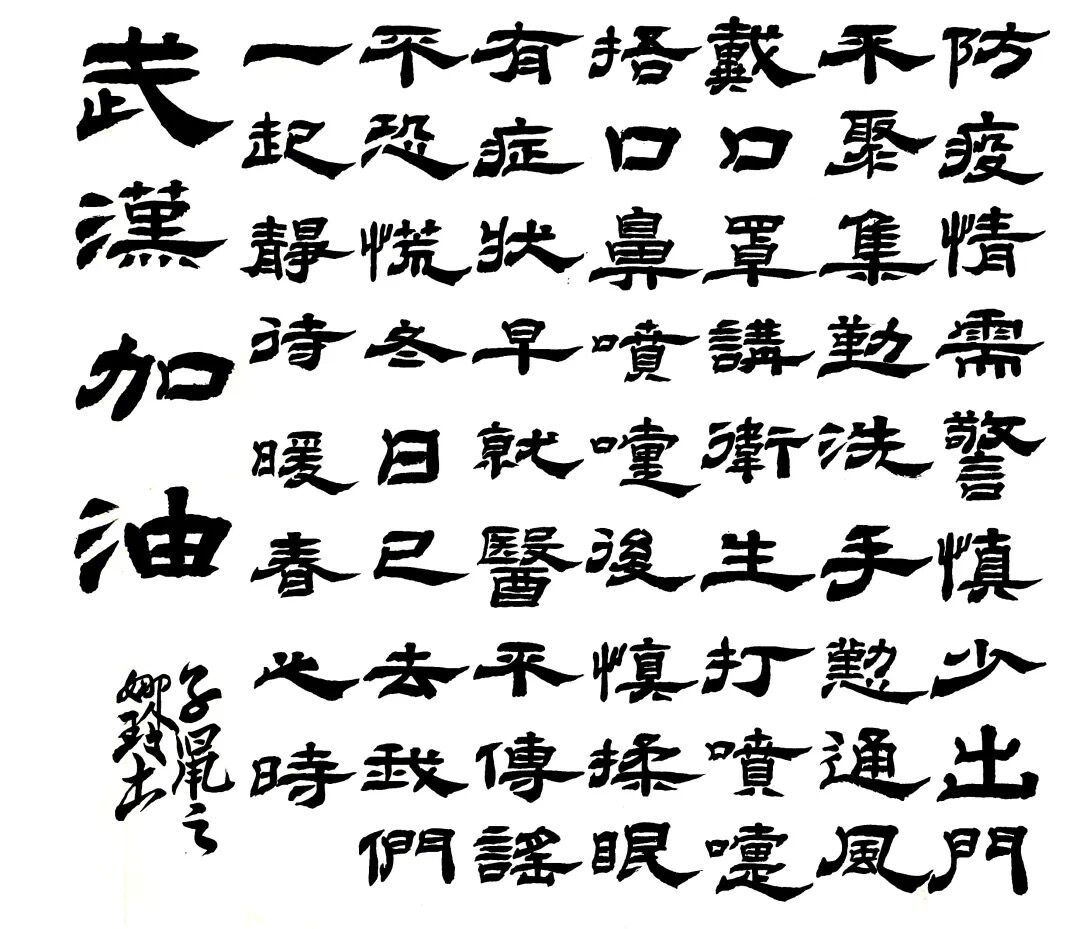 防疫情需警慎少出門
不聚集勤洗手懃通風
戴口罩講衛生打噴嚏
捂口鼻噴嚏後慎揉眼
有症狀早就醫不傳謠
不恐慌冬日已去我們
一起靜待暖春之時
武漢加油
子鼠之